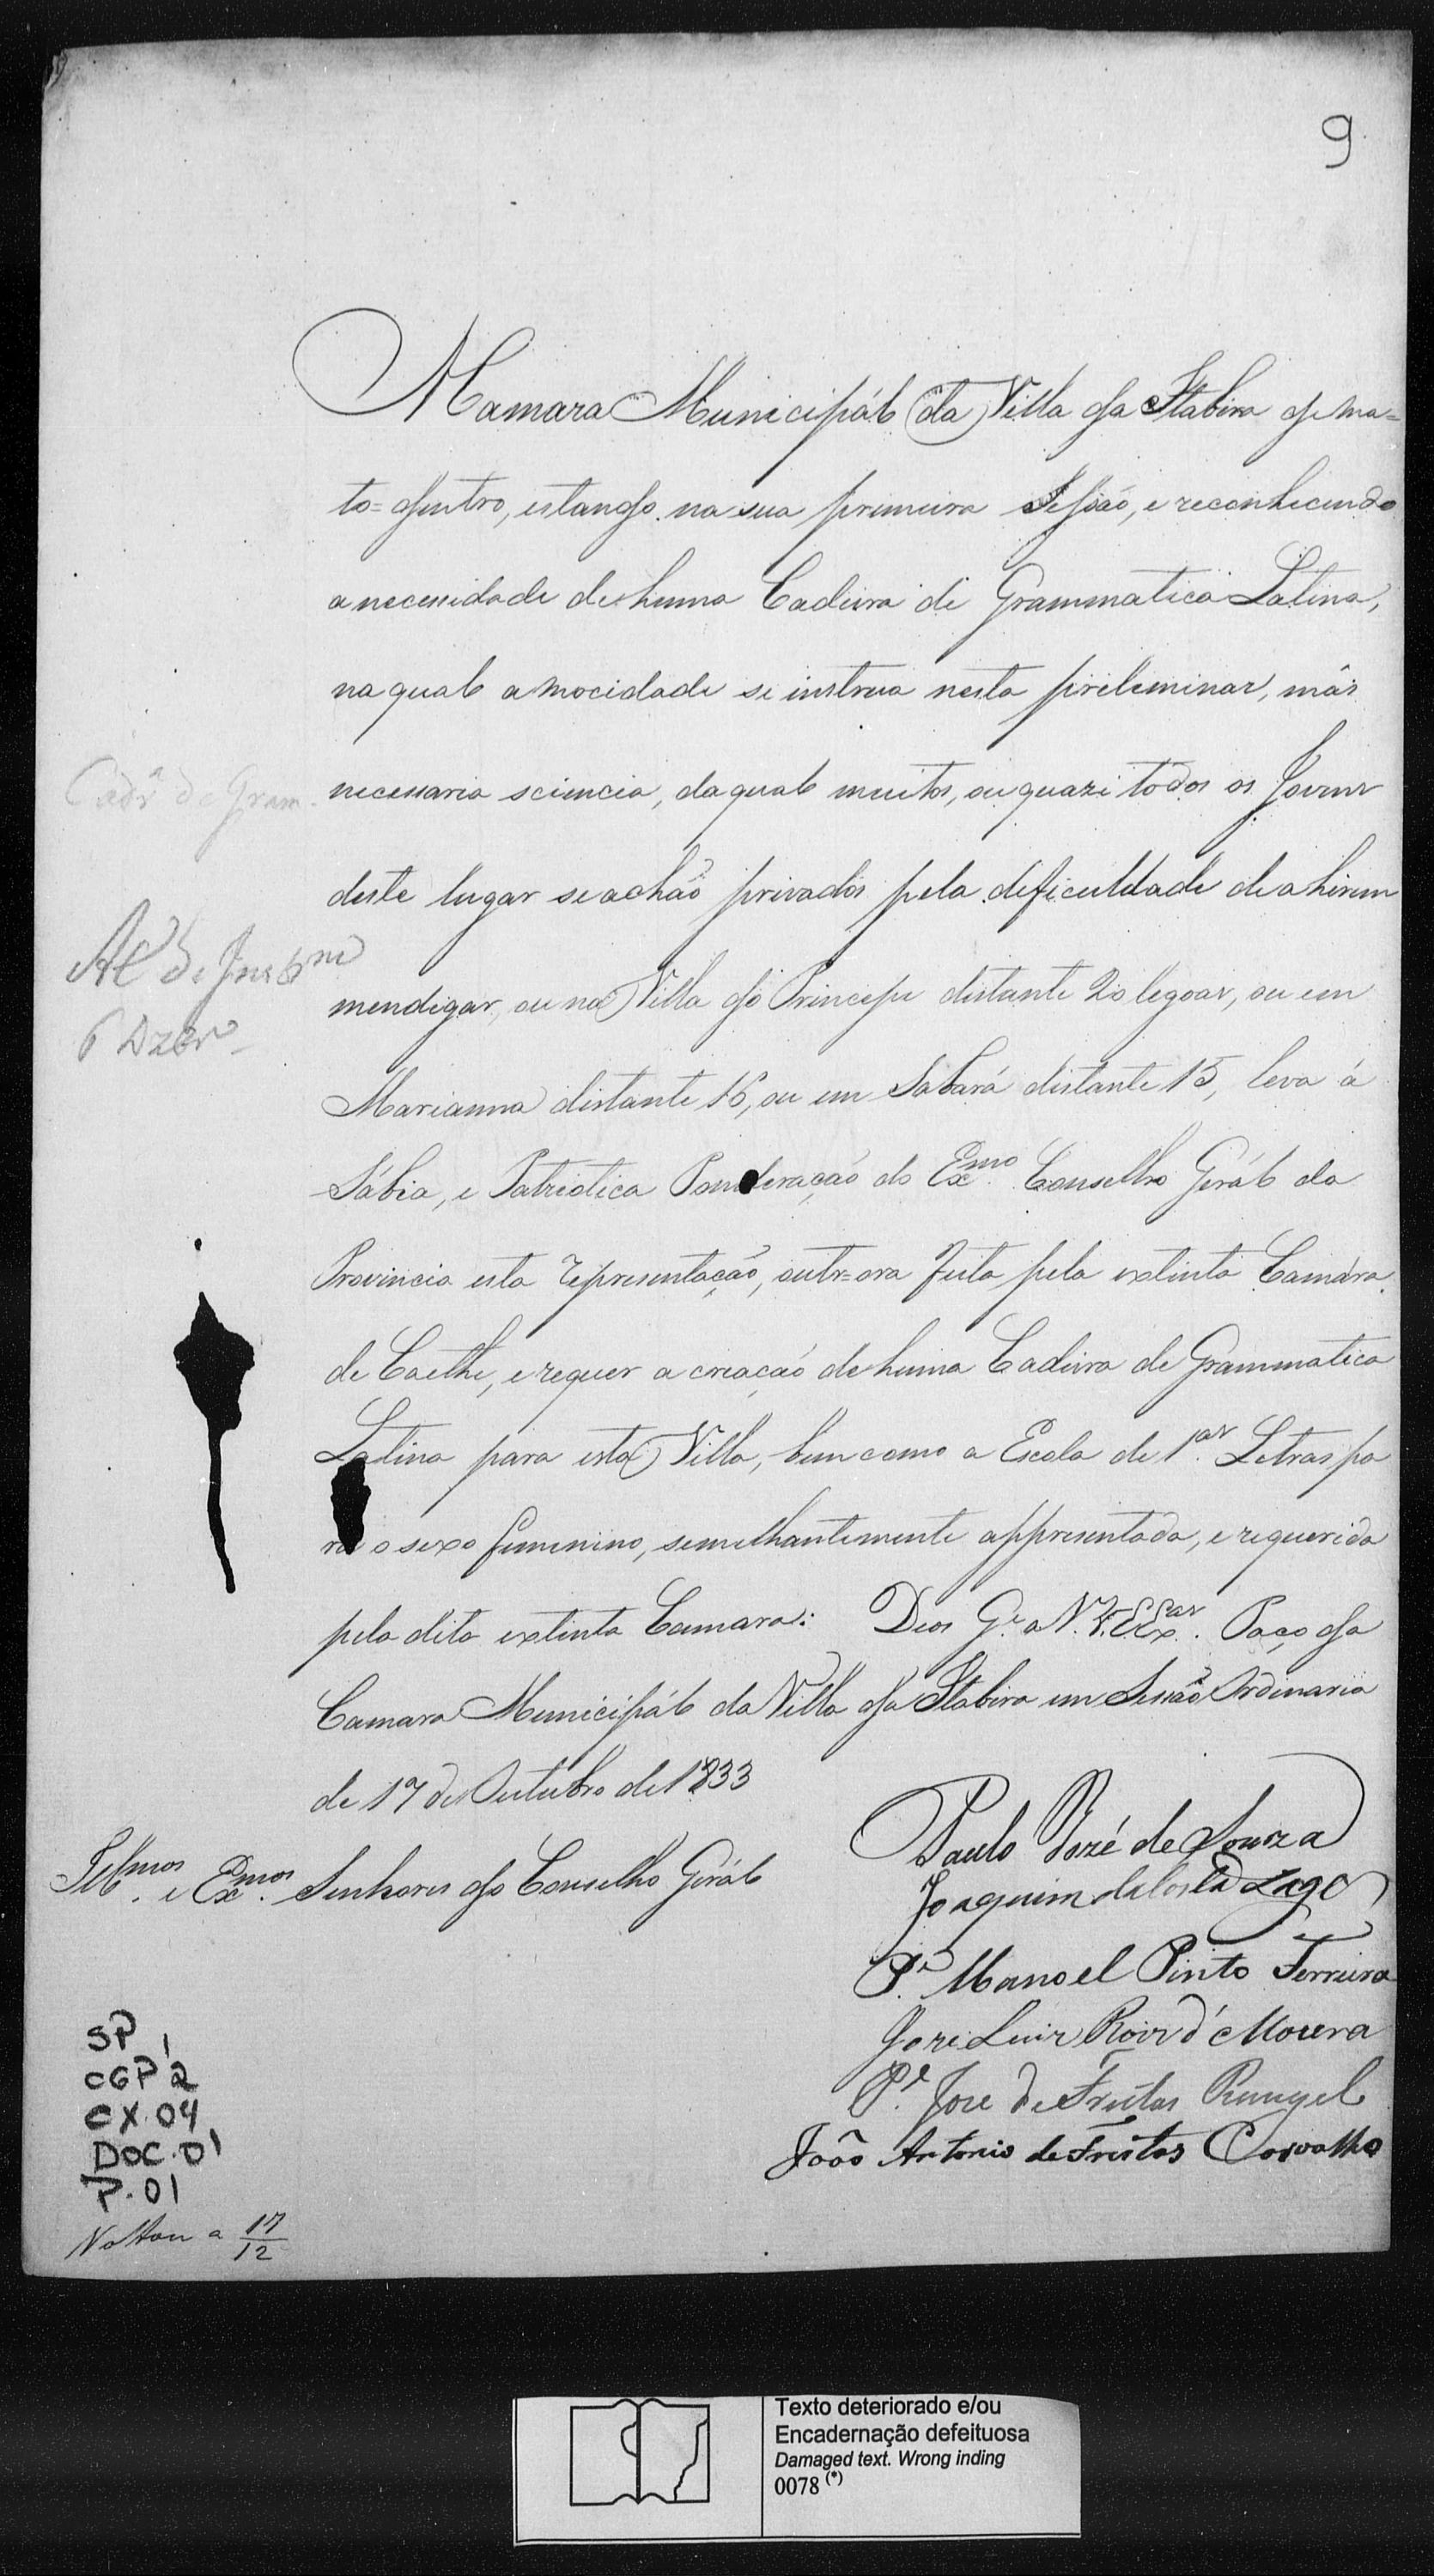 9
A Camara Municipál da Villa da Itabira de ma=
to=dentro, estando na sua primeira Sessão, e reconhecendo
a necessidade de huma Cadeira de Grammatica Latina,
na qual a mocidade se instrua nesta preleminar, mâs
necessaria sciencia, da qual muitos, ou quazi todos os Jovens
deste lugar se achão privados pela deficuldade de a hirem
mendigar, ou na Villa do Principe distante 20 legoas, ou em
Marianna distante 16, ou em Sabará distante 15, leva á
Sábia, e Patriotica Ponderação do Exmo. Conselho Gerál da
Provincia esta representação, outr=ora feita pela extinta Camára
de Caethe, e requer a creação de huma Cadeira de Grammatica
Latina para esta Villa, bem como a Escola de 1as. Letras pa
ra o sexo femenino, semelhantemente appresentada, e requerida
pela dita extinta Camara: Deos Ge. a V.V. EExas. Paço da
Camara Municipál da Villa da Itabira em Sessão Ordinaria
de 17 de Outubro de 1833
Illmos. e Exmos. Senhores do Conselho Gerál
Paulo Jozé de Souza
Joaquim da Costa Lage
Pe. Manoel Pinto Ferreira
Joze Luiz Roiz d'Moura
Pe. Joze de Freitas Rangel
João Antonio de Freitas Carvalho
Cadra. de Gram.
A C de Instrm
6 Dzbro
SP 1
CGP 2
CX. 04
DOC. 01
P. 01
Voltou a 17/12
Texto deteriorado e/ou
Encadernação defeituosa
Damaged text. Wrong inding
0078 (*)